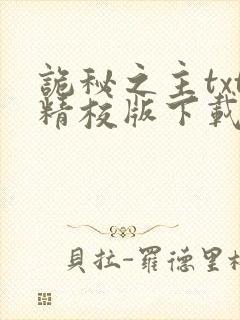 詭秘之主txt
精校版下載
貝拉-羅德里格